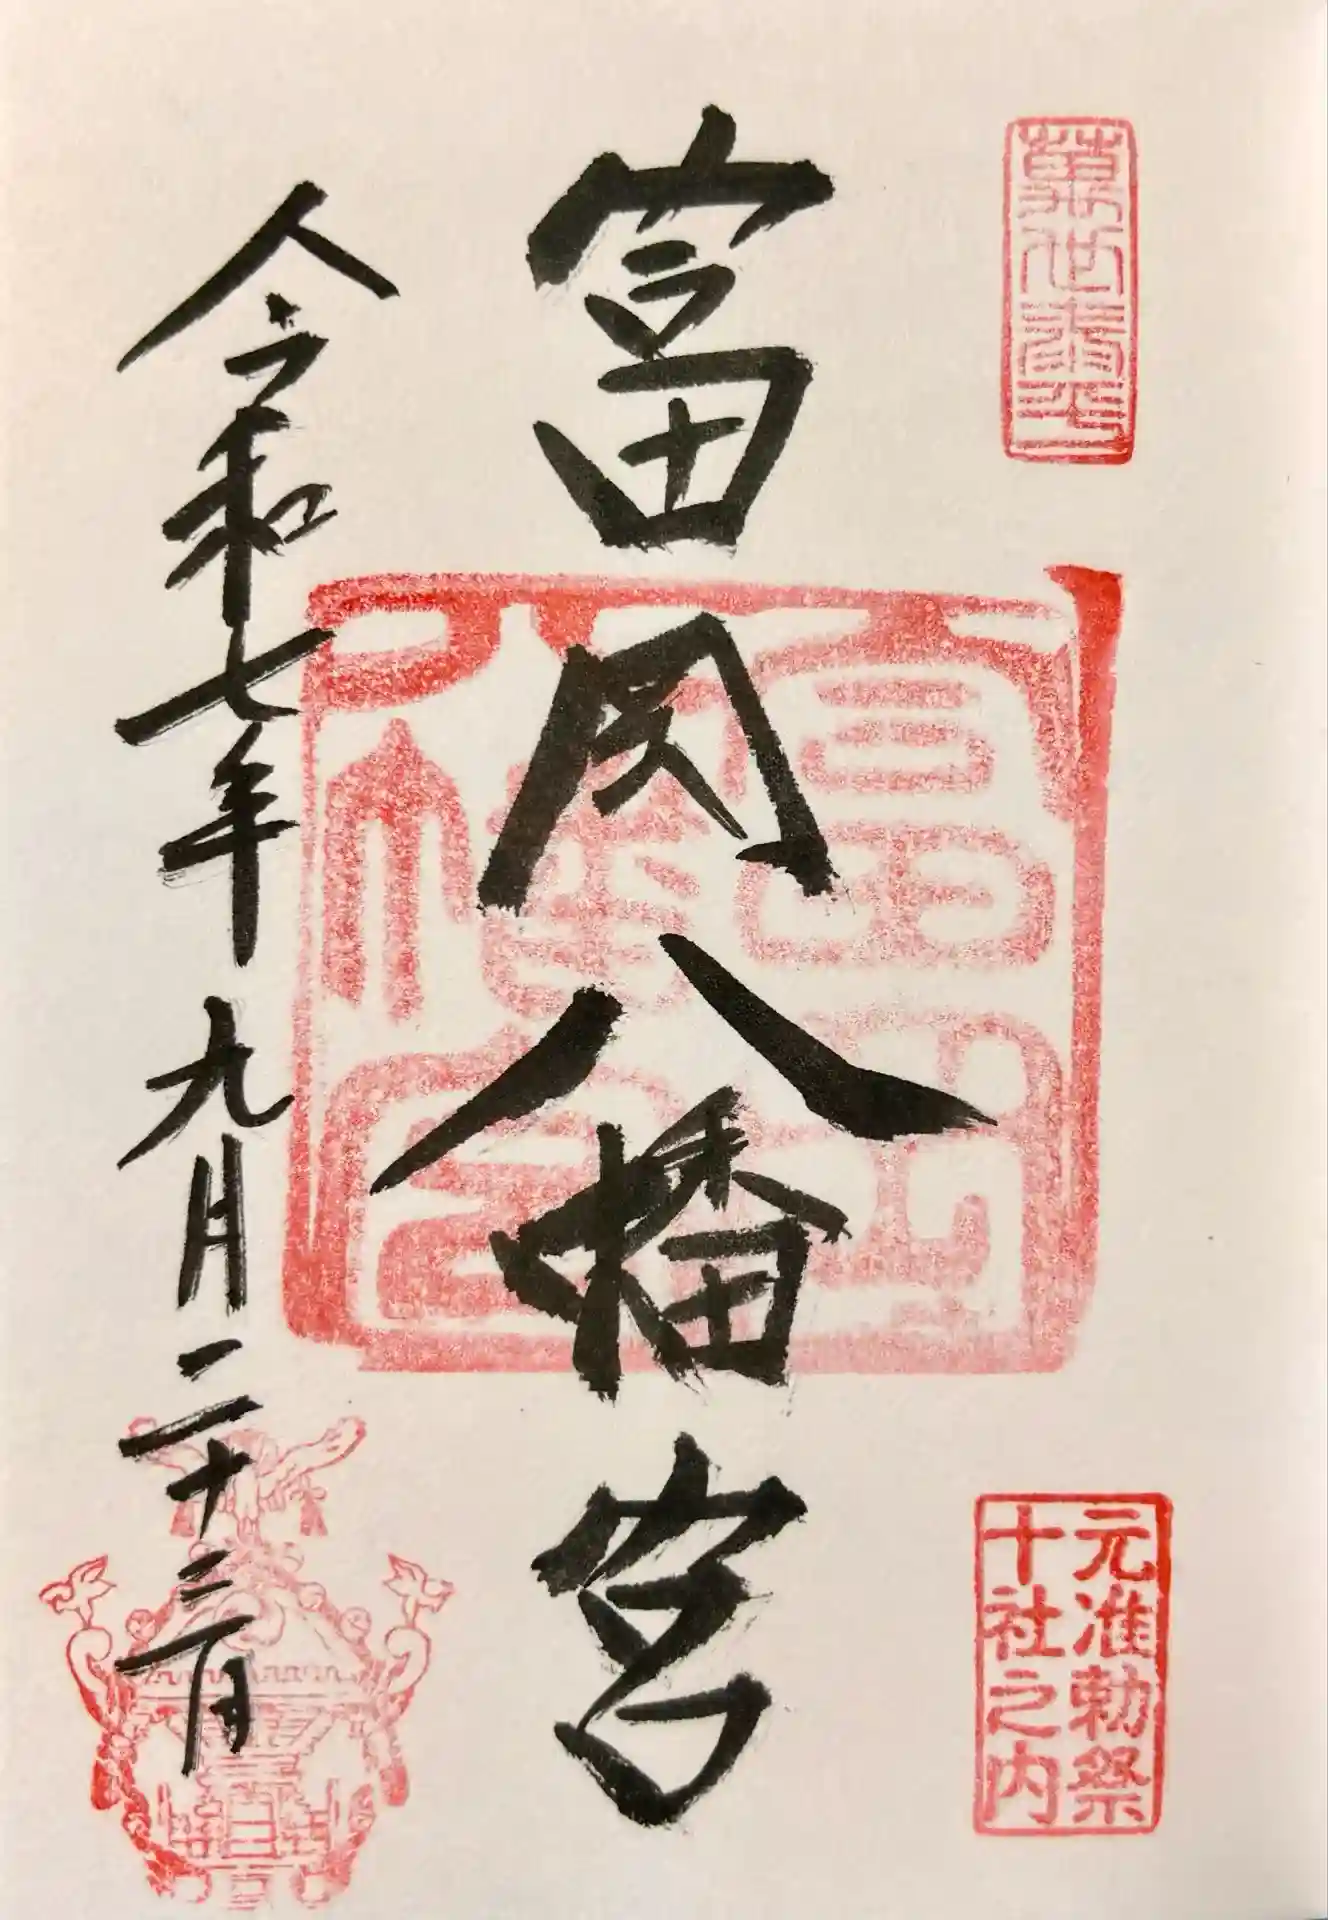 元准勅祭
十社之内
富岡八幡宮
富岡
八幡宮
令和七年九月二十三日